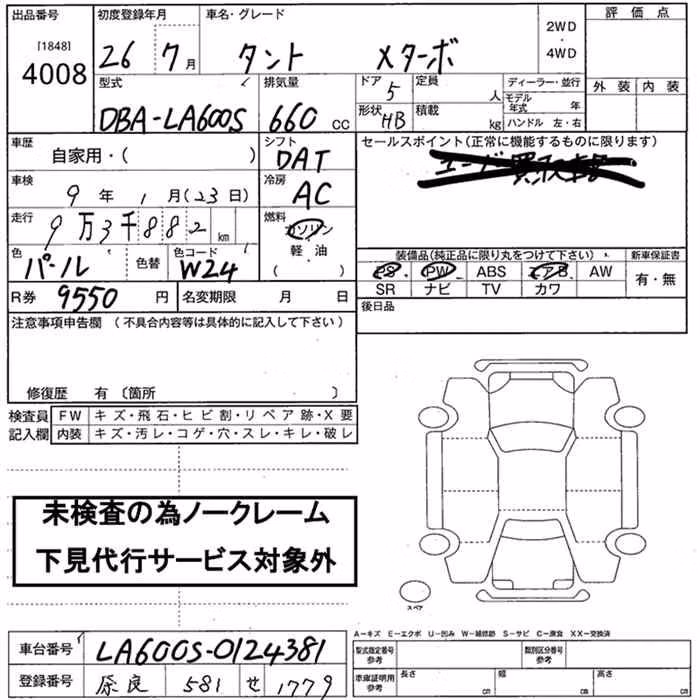 出品番号 初度登録年月 車名・グレード 評価点
[1848] 4008 26 7月 タント Xターボ 2WD・4WD
型式 排気量 ドア 定員 ディーラー・並行 外装 内装
DBA-LA600S 660 CC 5 人 モデル年式 年
形状 HB 積載 kg ハンドル 左・右
車歴 シフト セールスポイント(正常に機能するものに限ります)
自家用・( ) DAT
車検 冷房
9年1月(23日) AC
走行 燃料
9万3千882km ガソリン
軽油
( )
色 色替 色コード 装備品(純正品に限り丸をつけて下さい) 新車保証書
パール W24 PS PW ABS エアB AW 有・無
SR ナビ TV カワ
R券 9550円 名変期限 月 日 後日品
注意事項申告欄(不具合内容等は具体的に記入して下さい)
修復歴 有〔箇所 〕
検査員 FW キズ・飛石・ヒビ割・リペア跡・X要
記入欄 内装 キズ・汚レ・コゲ・穴・スレ・キレ・破レ
未検査の為ノークレーム
下見代行サービス対象外
スペア
A−キズ E−エクボ U−凹み W−補修跡 S−サビ C−腐食 XX−交換済
車台番号 LA600S-0124381 型式指定番号 参考 類別区分番号 参考
登録番号 奈良 581 せ 1779 車庫証明用 参考 長さ cm 幅 cm 高さ cm